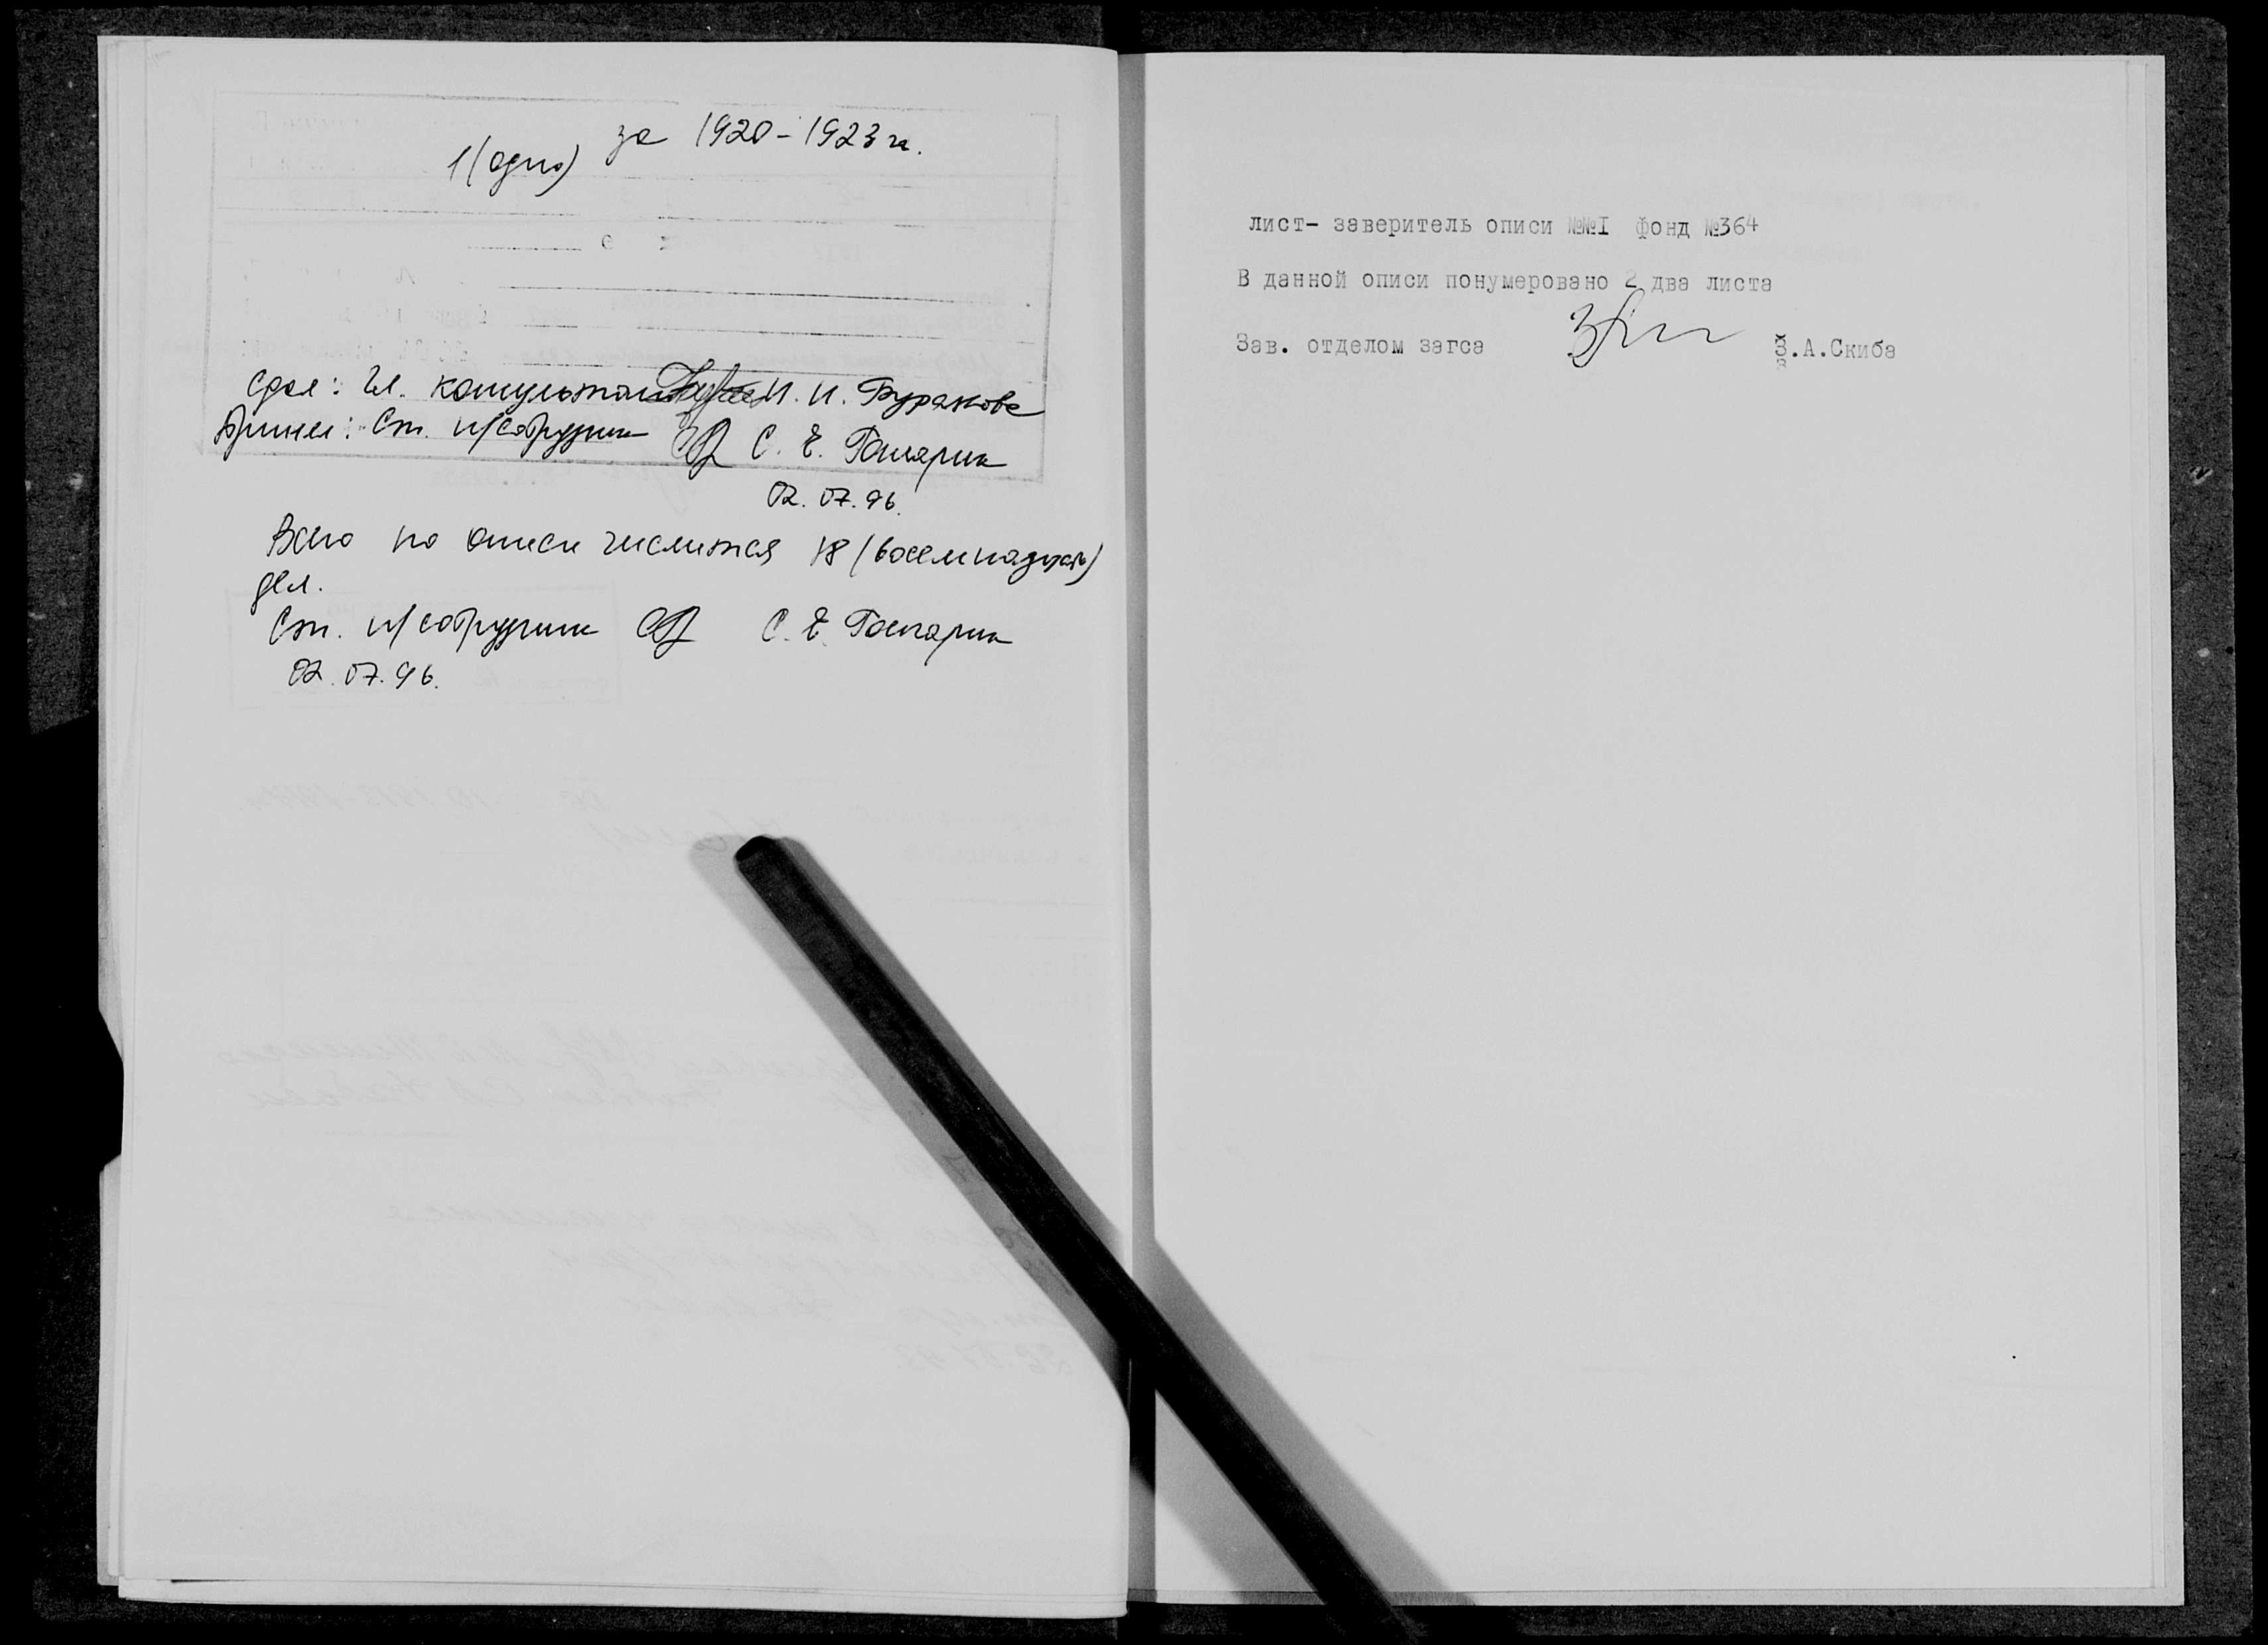 за 1920-1923 гг.
1 (одно)
Сдал: Гл. консультант И. И. Буракова
Принял: Ст. н/сотрудник С. Е.
02.07.96.
Всего по описи числится 18 (восемнадцать)
дел.
Ст. н/сотрудник С. Е.
02.07.96.
лист- заверитель описи №№I фонд №364
В данной описи понумеровано 2 два листа
Зав. отделом загса З.А.Скиба